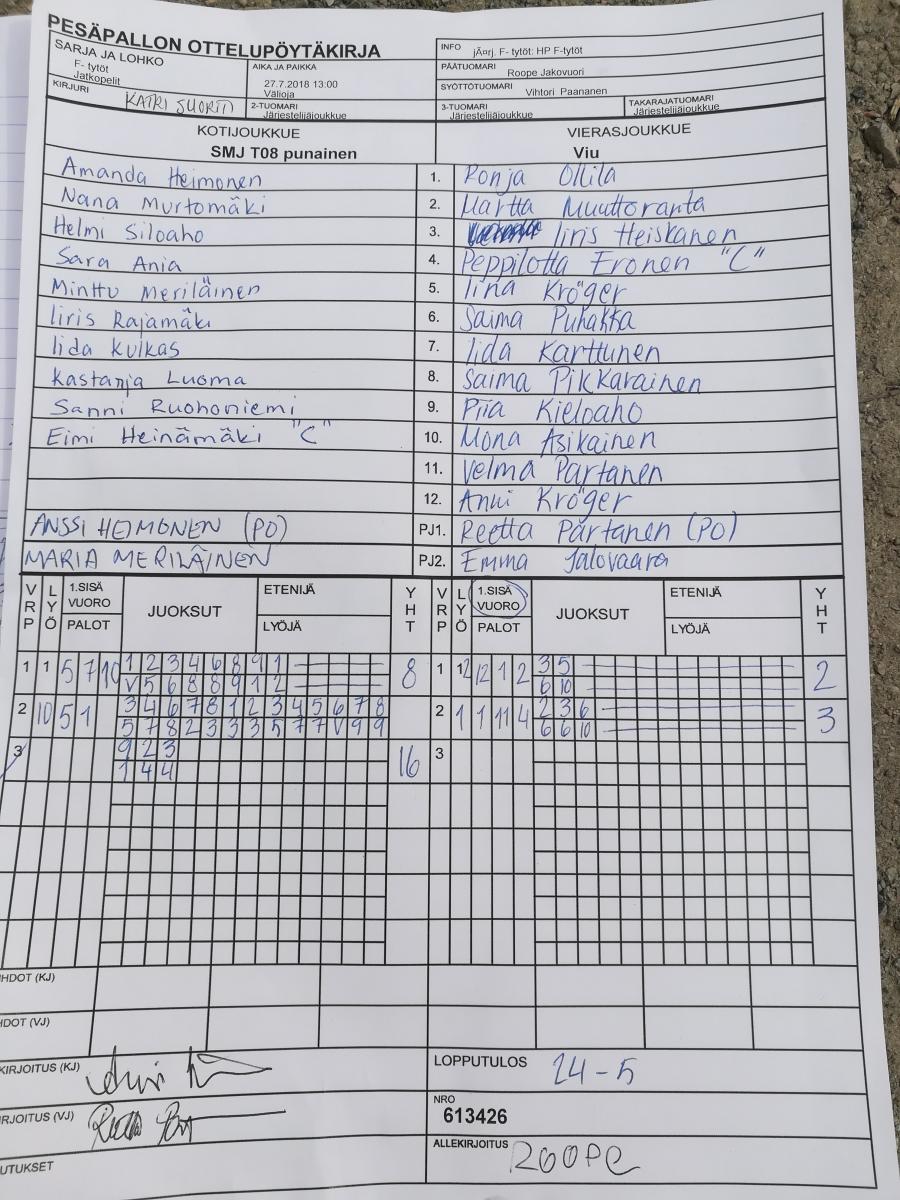 PESÄPALLON OTTELUPÖYTÄKIRJA
SARJA JA LOHKO
F- tytöt
Jatkopelit
AIKA JA PAIKKA
27.7.2018 13:00
Välioja
INFO jÃ¤rj. F- tytöt: HP F-tytöt
PÄÄTUOMARI
Roope Jakovuori
SYÖTTÖTUOMARI Vihtori Paananen
KIRJURI KATRI SUORTI
2-TUOMARI
Järjestelijäjoukkue
3-TUOMARI
Järjestelijäjoukkue
TAKARAJATUOMARI
Järjestelijäjoukkue
KOTIJOUKKUE VIERASJOUKKUE
SMJ T08 punainen Viu
Amanda Heimonen 1. Ronja Ollila
Nana Murtomäki 2. Martta Muuttoranta
Helmi Siloaho 3. Iiris Heiskanen
Sara Ania 4. Peppilotta Eronen "C"
Minttu Meriläinen 5. Iina Kröger
Iiris Rajamäki 6. Saima Puhakka
Iida Kulkas 7. Iida Karttunen
Kastanja Luoma 8. Saima Pikkarainen
Sanni Ruohoniemi 9. Piia Kieloaho
Eimi Heinämäki "C" 10. Mona Asikainen
11. Velma Partanen
12. Anni Kröger
ANSSI HEIMONEN (PO) PJ1. Reetta Partanen (PO)
MARIA MERILÄINEN PJ2. Emma Jalovaara
VRP LYÖ 1.SISÄ VUORO PALOT JUOKSUT ETENIJÄ LYÖJÄ YHT VRP LYÖ 1.SISÄ VUORO PALOT JUOKSUT ETENIJÄ LYÖJÄ YHT
1 1 5 7 10 1 2 3 4 6 8 9 1 8 1 12 12 1 2 3 5 2
V 5 6 8 8 9 1 2 6 10
2 10 5 1 3 4 6 7 8 1 2 3 4 5 6 7 8 2 1 1 11 4 2 3 6 3
5 7 8 2 3 3 3 5 7 7 V 9 9 6 6 10
3 9 2 3 16 3
1 4 4
HDOT (KJ)
HDOT (VJ)
KIRJOITUS (KJ) LOPPUTULOS 24-5
RJOITUS (VJ) NRO
613426
UTUKSET ALLEKIRJOITUS ROOPE